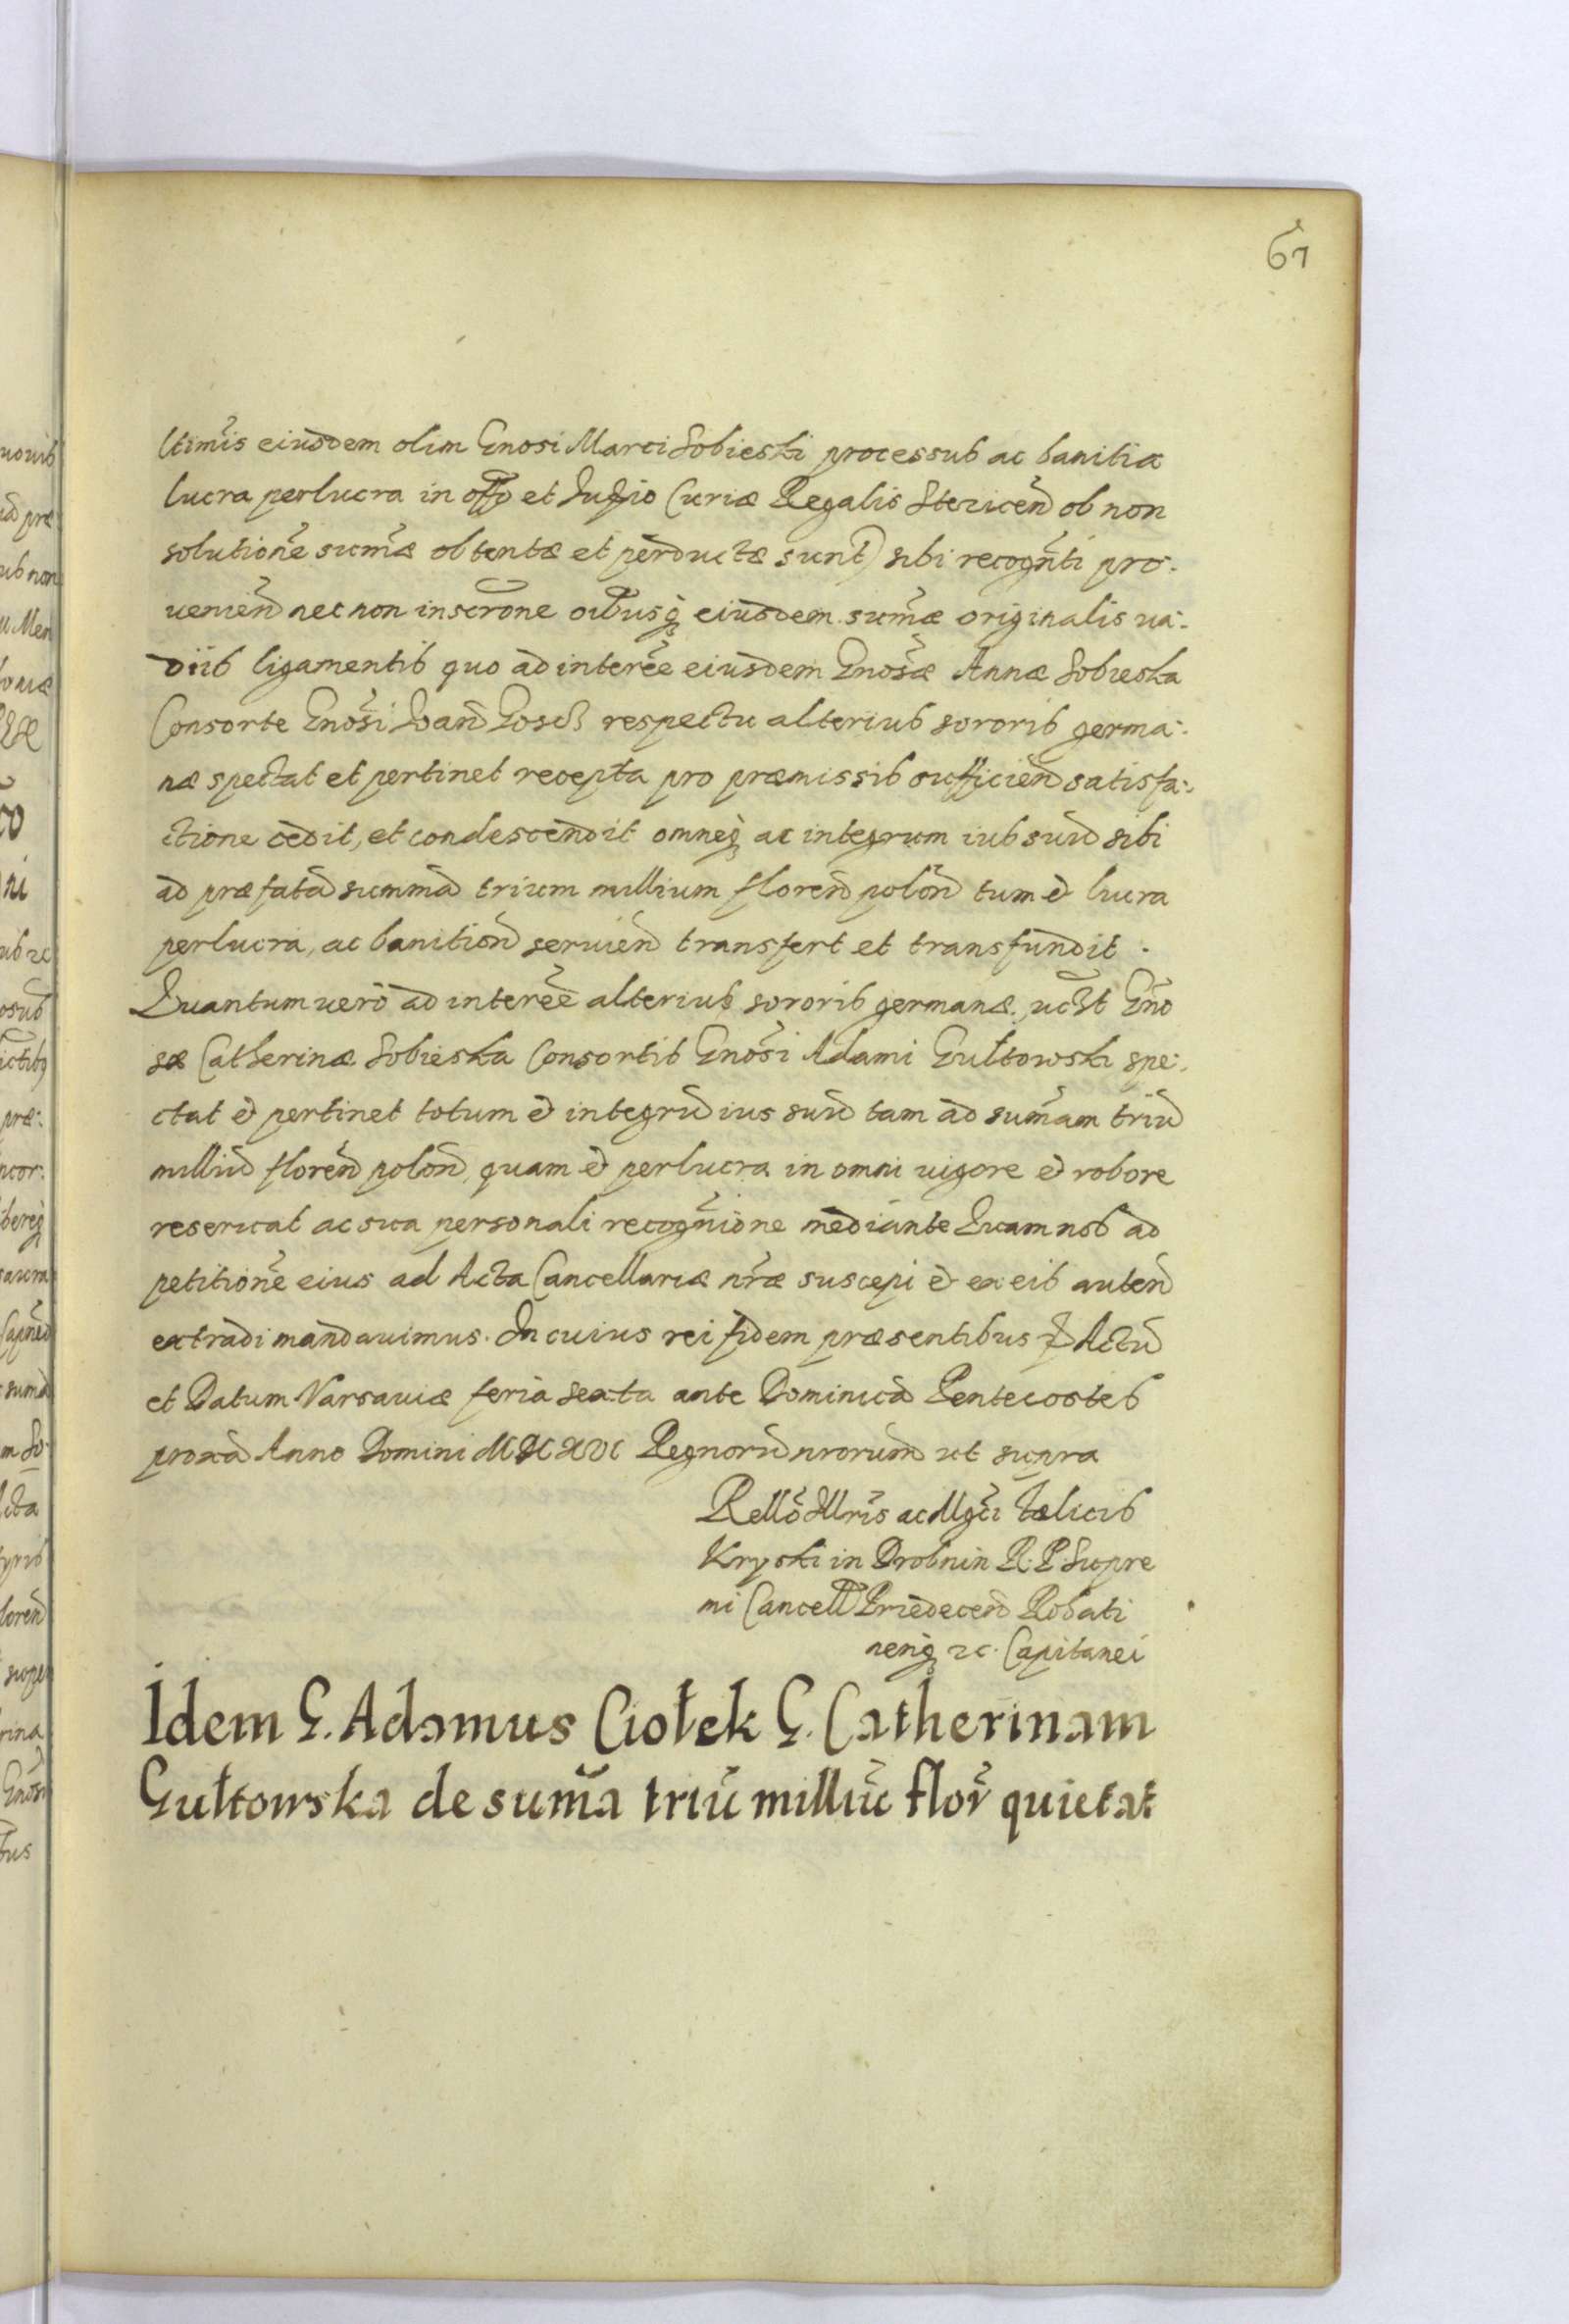 67
ltimis eiusdem olim Gnosi Marci Sobieski processus ac banitia
lucra perlucra in offo et Judio Curiæ Regalis Stezicen ob non
solutione sumæ obtentæ et perductæ sunt) sibi recognti pro-
uenien nec non inscrone oibusq eiusdem sumæ originalis ua-
diis ligamentis quo ad interee eiusdem Gnosæ Annæ Sobieska
Consorte Gnosi Joan Gosch respectu alterius sororis germa-
næ spectat et pertinet recepta pro præmissis sufficien satisfa-
ctione cedit, et condescendit omneq ac integrum ius suu sibi
ad præfata summa trium millium floren polon tum et lucra
perlucra, ac banition seruien transfert et transfundit.
Quantum uero ad interee alterius sororis germanæ, uct Gno
sæ Catherinæ Sobieska Consortis Gnosi Adami Gułtowski spe-
ctat et pertinet totum et integru ius suu tam ad sumam triu
milliu floren polon, quam et perlucra in omni uigore et robore
reseruat ac sua personali recognione mediante Quam nos ad
petitione eius ad Acta Cancellariæ nræ suscepi et ex eis auten
extradi mandauimus. In cuius rei fidem præsentibus Actu
et Datum Varsauiæ feria sexta ante Dominica Pentecostes
proxa Anno Domini MDCXVI Regnoru nrorum ut supra
Rello Illris ac Mgci Fælicis
Kryski in Drobnin R. P. Supre
mi Cancell Priedecen Rohati
nenq zc. Capitanei
Idem G. Adamus Ciołek G. Catherinam
Gułtowska de suma triu milliu flor quietat